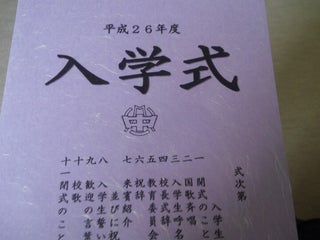 平成２６年度
入学式
中
式次第
一 開式のこと
二 国歌斉唱
三 入学生呼名
四 校長式辞
五 教育委員会
六 祝辞
七 来賓紹介
並びに祝
八 入学生
九 入学生誓い
十 歓迎の言葉
十 校歌
十一 閉式のこと